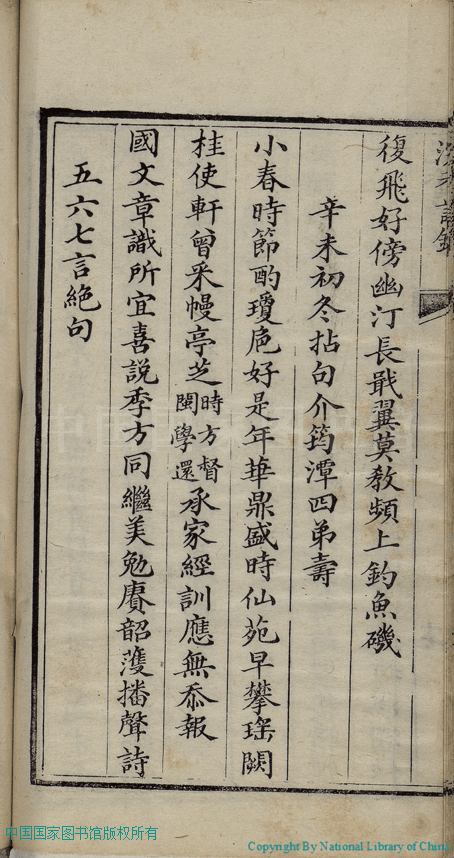 復飛好傍幽汀長戢翼莫教頻上釣魚磯
辛未初冬拈句介筠潭四弟壽
小春時節酌瓊卮好是年華鼎盛時仙苑早攀瑤闕
桂使軒曾采幔亭芝時方督閩學還承家經訓應無忝報
國文章識所宜喜說季方同繼美勉賡韶頀播聲詩
五六七言絕句
中国国家图书馆版权所有
Copyright By National Library of China